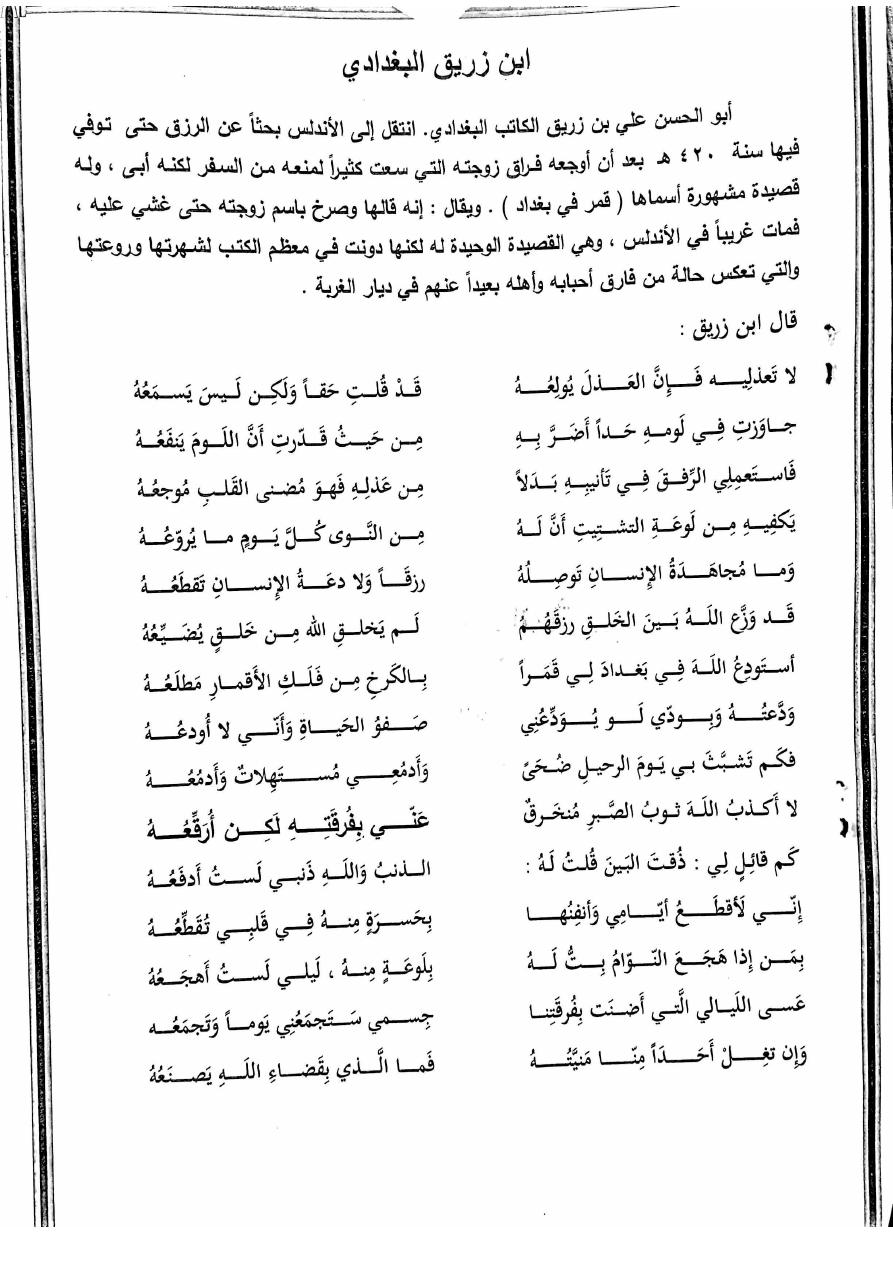 ابن زريق البغدادي
أبو الحسن علي بن زريق الكاتب البغدادي. انتقل إلى الأندلس بحثاً عن الرزق حتى توفي
فيها سنة ٤٢٠ هـ بعد أن أوجعه فراق زوجته التي سعت كثيراً لمنعه من السفر لكنه أبى ، وله
قصيدة مشهورة أسماها ( قمر في بغداد ) . ويقال : إنه قالها وصرخ باسم زوجته حتى غشي عليه ،
فمات غريباً في الأندلس ، وهي القصيدة الوحيدة له لكنها دونت في معظم الكتب لشهرتها وروعتها
والتي تعكس حالة من فارق أحبابه وأهله بعيداً عنهم في ديار الغربة .
قال ابن زريق :
لا تَعذلِيـــه فَـــإِنَّ العَـــذلَ يُولِعُـــهُ قَــدْ قُلــتِ حَقـاً وَلَكِـن لَـيسَ يَسـمَعُهُ
جـاوَزتِ فِـي لَومـهِ حَـداً أَضَـرَّ بِـهِ مِـن حَيـثُ قَـدّرتِ أَنَّ اللَـومَ يَنفَعُـهُ
فَاسـتَعمِلِي الرِّفـقَ فِـي تَأنِيبِـهِ بَـدَلاً مِـن عَذلِـهِ فَهـوَ مُضنى القَلـبِ مُوجعُـهُ
يَكفِيـهِ مِـن لَوعَـةِ التشتِيتِ أَنَّ لَـهُ مِـن النَّـوى كُـلَّ يَـومٍ مـا يُروّعُـهُ
وَمـا مُجاهَـدَةُ الإِنسـانِ تَوصِـلُهُ رزقَـاً وَلا دعَـةُ الإِنسـانِ تَقطَعُـهُ
قَـد وَزَّع اللَـهُ بَـينَ الخَلـقِ رزقَهُـمُ لَـم يَخلـقِ الله مِـن خَلـقٍ يُضَـيِّعُهُ
أستَودِعُ اللَـهَ فِـي بَغـدادَ لِـي قَمَـراً بِـالكَرخِ مِـن فَلَـكِ الأَقمـارِ مَطلَعُـهُ
وَدَّعتُـهُ وَبِـودّي لَـو يُـوَدِّعُنِي صَـفوُ الحَيـاةِ وَأَنّـي لا أُودعُـهُ
فكَـم تَشـبَّثَ بـي يَـومَ الرحيـلِ ضُحَـىً وَأَدمُعِـي مُسـتَهِلاتٌ وَأَدمُعُـهُ
لا أَكـذبُ اللَـهَ ثـوبُ الصَّبرِ مُنخَـرقٌ عَنّـي بِفُرقَتِـهِ لَكِـن أُرَقِّعُـهُ
كَم قائِلٍ لِي : ذُقـتَ البَـينَ قُلـتُ لَهُ : الـذنبُ وَاللَـهِ ذَنبي لَسـتُ أَدفَعُـهُ
إِنّـي لَأَقطَـعُ أيّـامِي وَأنفِنُهـا بِحَسـرَةٍ مِنـهُ فِـي قَلبِـي تُقَطِّعُـهُ
بِمَـن إِذا هَجَـعَ النّـوّامُ بِـتُّ لَـهُ بِلَوعَـةٍ مِنـهُ ، لَيلـي لَسـتُ أَهجَـعُهُ
عَسـى اللَيـالي الَّتـي أَضنَت بِفُرقَتِنـا جِسـمي سَـتَجمَعُنِي يَومـاً وَتَجمَعُـه
وَإِن تغِـلْ أَحَـدَاً مِنّـا مَنيَّتُـهُ فَمـا الَّـذي بِقَضـاءِ اللَـهِ يَصـنَعُهُ